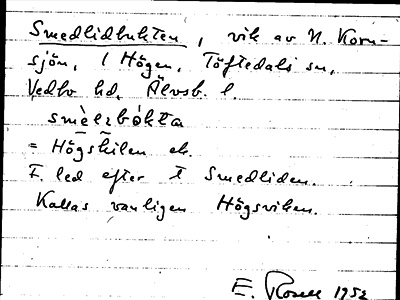 Smedlidbukten, vik av N. Korn-
sjön, i Högen, Töftedals sn,
Vedbo hd, Älvsb. l.
smèlzbòkta
= Högskilen el.
F. led efter t Smedliden.
Kallas vanligen Högsviken.
E. Rosell 1952